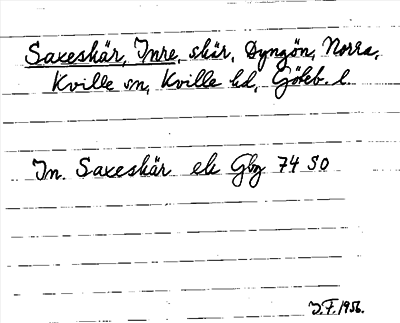 Saxeskär, Inre, skär, Dyngön, Norra,
Kville sn, Kville hd, Göteb. l.
In. Saxeskär ek Gbg 74 SO
J.F. 1956.